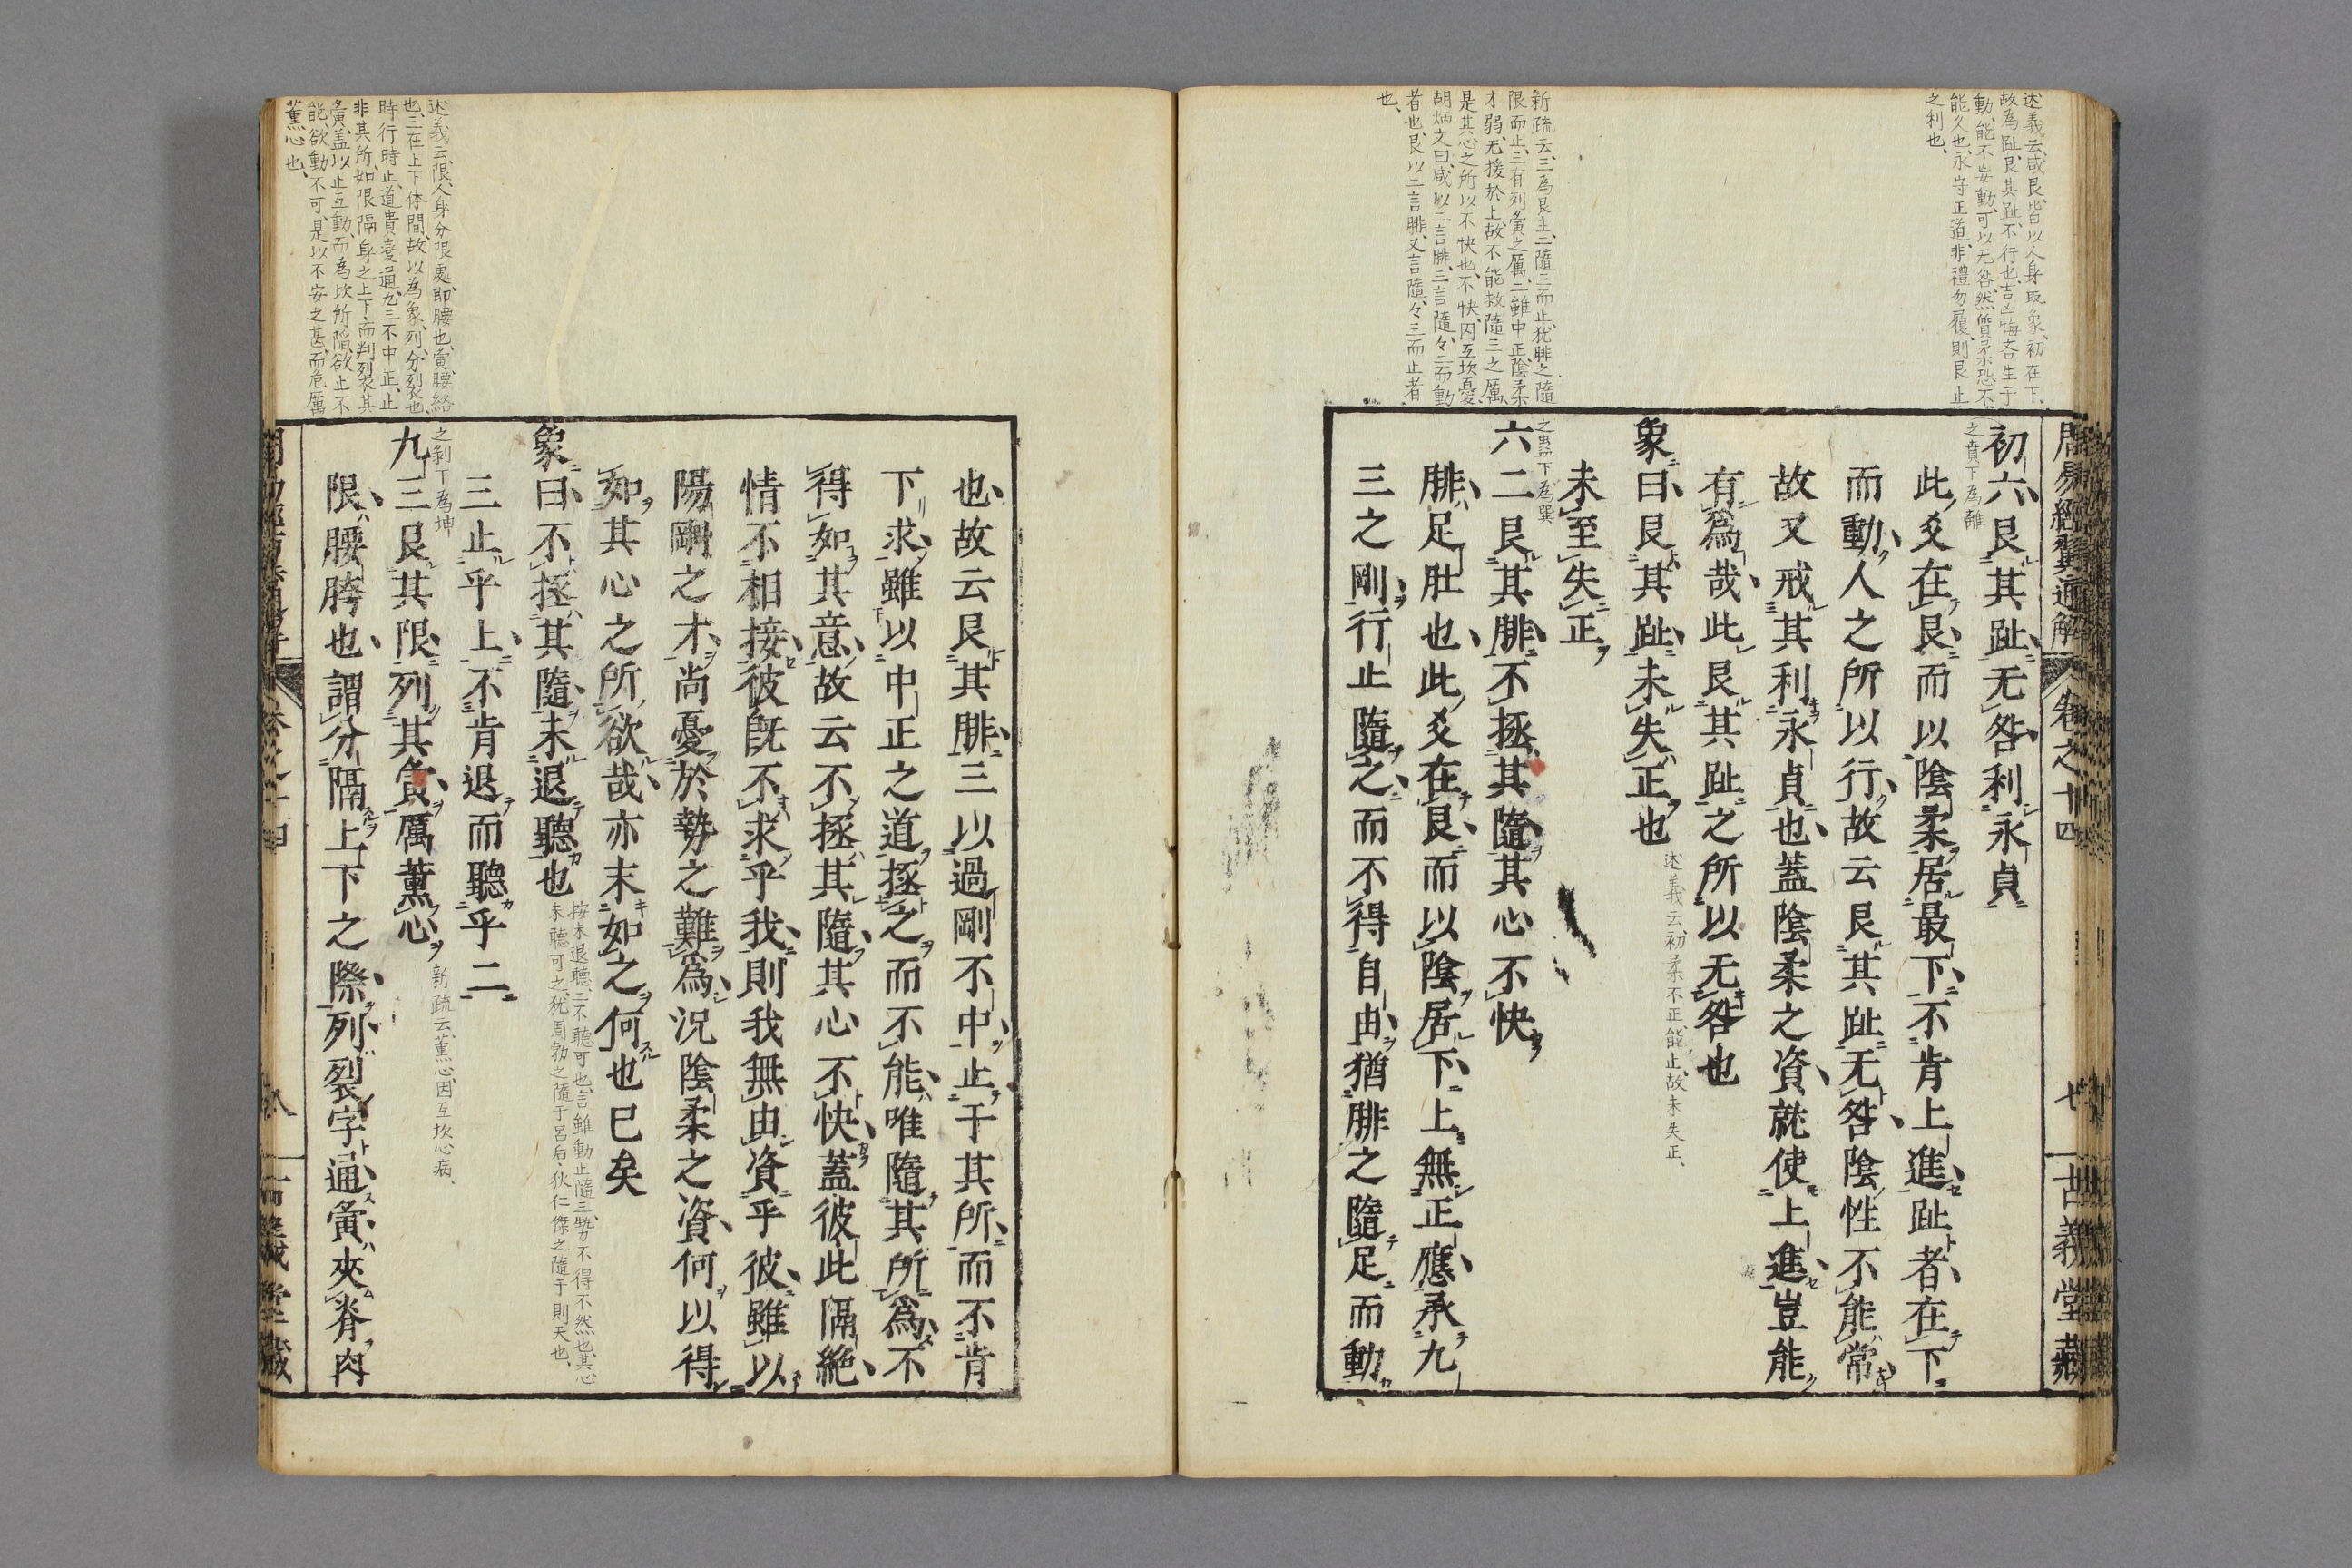 周易經翼通解
卷之十四
七
古義堂藏
述義云、咸艮、皆以人身取象、初在下、
故為趾、艮其趾、不行也、吉凶悔吝生于
動、能不妄動、可以无咎、然質柔恐不
能久也、永守正道、非禮勿履、則艮止
之利也、
初六艮其趾无咎利永貞
之賁下為離
此爻在艮而以陰柔居最下不肯上進趾者在下
而動人之所以行故云艮其趾无咎陰性不能常
故又戒其利永貞也蓋陰柔之資就使上進豈能
有爲哉此艮其趾之所以无咎也
象曰艮其趾未失正也
述義云、初柔不正、能止、故未失正、
未至失正
新疏云、三為艮主、二隨三而止、犹腓之隨
限而止、三有列夤之厲、二雖中正、陰柔
才弱、无援於上、故不能救隨三之厲、
是其心之所以不快也、不快、因互坎憂、
胡炳文曰、咸以二言腓、三言隨、々二而動
者也、艮以二言腓、又言隨、々三而止者
也、
之蠱下為巽
六二艮其腓不拯其隨其心不快
腓足肚也此爻在艮而以陰居下上無正應承九
三之剛行止隨之而不得自由猶腓之隨足而動
也故云艮其腓三以過剛不中止于其所而不肯
下求雖以中正之道拯之而不能唯隨其所爲不
得如其意故云不拯其隨其心不快蓋彼此隔絶
情不相接彼旣不求乎我則我無由資乎彼雖以
陽剛之才尚憂於勢之難爲況陰柔之資何以得
如其心之所欲哉亦末如之何也已矣
象曰不拯其隨未退聽也
按、未退聽、二不聽可也、言雖動止隨三、勢不得不然也、其心
未聽可之、犹周勃之隨于呂后、狄仁傑之隨于則天也、
三止乎上不肯退而聽乎二
述義云、限、人身分限處、即腰也、夤、腰絡
也、三在上下体間、故以為象、列、分列裂也、
時行時止、道貴變通、九三不中正、止
非其所、如限隔身之上下、而判列衣其
夤、盖以止互動、而為坎所陷、欲止不
能、欲動不可、是以不安之甚、而危厲
薫心也、
之剥下為坤
九三艮其限列其夤厲薫心
新疏云、薫心、因互坎心病、
限腰胯也謂分隔上下之際列裂字通夤夾脊肉
八